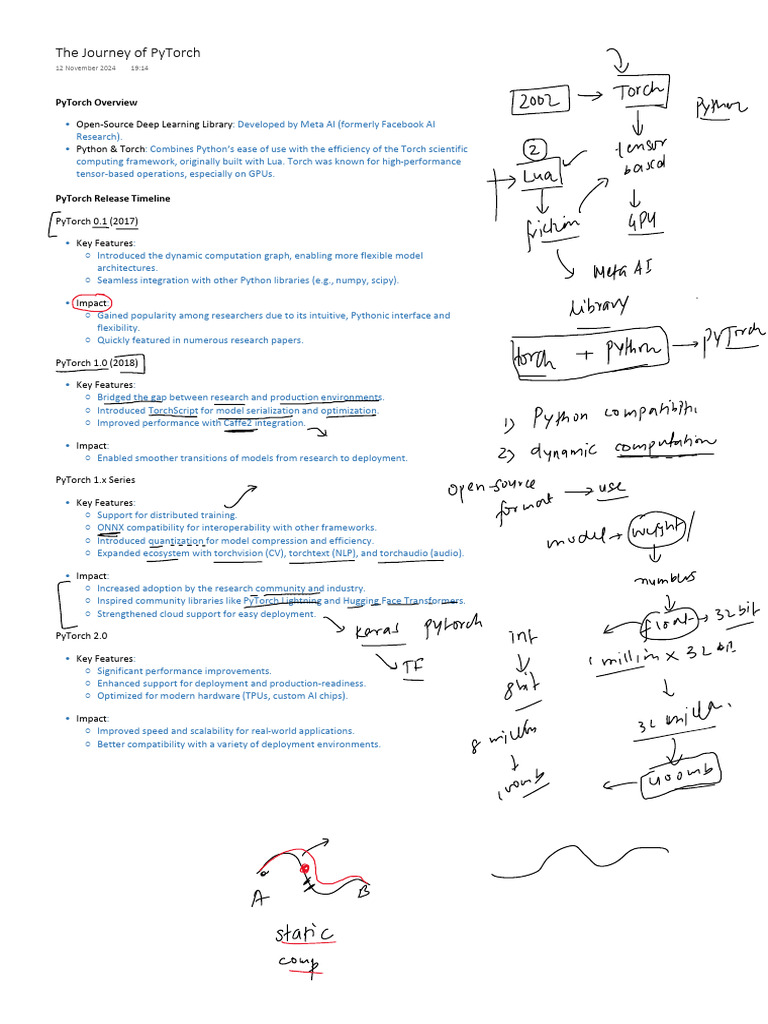 The Journey of PyTorch
12 November 2024 19:14
PyTorch Overview
• Open-Source Deep Learning Library: Developed by Meta AI (formerly Facebook AI
Research).
• Python & Torch: Combines Python's ease of use with the efficiency of the Torch scientific
computing framework, originally built with Lua. Torch was known for high-performance
tensor-based operations, especially on GPUs.
PyTorch Release Timeline
PyTorch 0.1 (2017)
• Key Features:
○ Introduced the dynamic computation graph, enabling more flexible model
architectures.
○ Seamless integration with other Python libraries (e.g., numpy, scipy).
• Impact:
○ Gained popularity among researchers due to its intuitive, Pythonic interface and
flexibility.
○ Quickly featured in numerous research papers.
PyTorch 1.0 (2018)
• Key Features:
○ Bridged the gap between research and production environments.
○ Introduced TorchScript for model serialization and optimization.
○ Improved performance with Caffe2 integration.
• Impact:
○ Enabled smoother transitions of models from research to deployment.
PyTorch 1.x Series
• Key Features:
○ Support for distributed training.
○ ONNX compatibility for interoperability with other frameworks.
○ Introduced quantization for model compression and efficiency.
○ Expanded ecosystem with torchvision (CV), torchtext (NLP), and torchaudio (audio).
• Impact:
○ Increased adoption by the research community and industry.
○ Inspired community libraries like PyTorch Lightning and Hugging Face Transformers.
○ Strengthened cloud support for easy deployment.
PyTorch 2.0
• Key Features:
○ Significant performance improvements.
○ Enhanced support for deployment and production-readiness.
○ Optimized for modern hardware (TPUs, custom AI chips).
• Impact:
○ Improved speed and scalability for real-world applications.
○ Better compatibility with a variety of deployment environments.
2002 → Torch
Python
2
Lua
tensor
based
friction
GPU
Meta AI
Library
torch + Python → PyTorch
1) Python compatibili
2) dynamic computation
open-source
format → use
model → weight
numbers
float → 32 bit
1 million × 32 bit
32 million
400mb
int
8bit
8 million
100mb
Keras PyTorch
TF
A B
static
comp